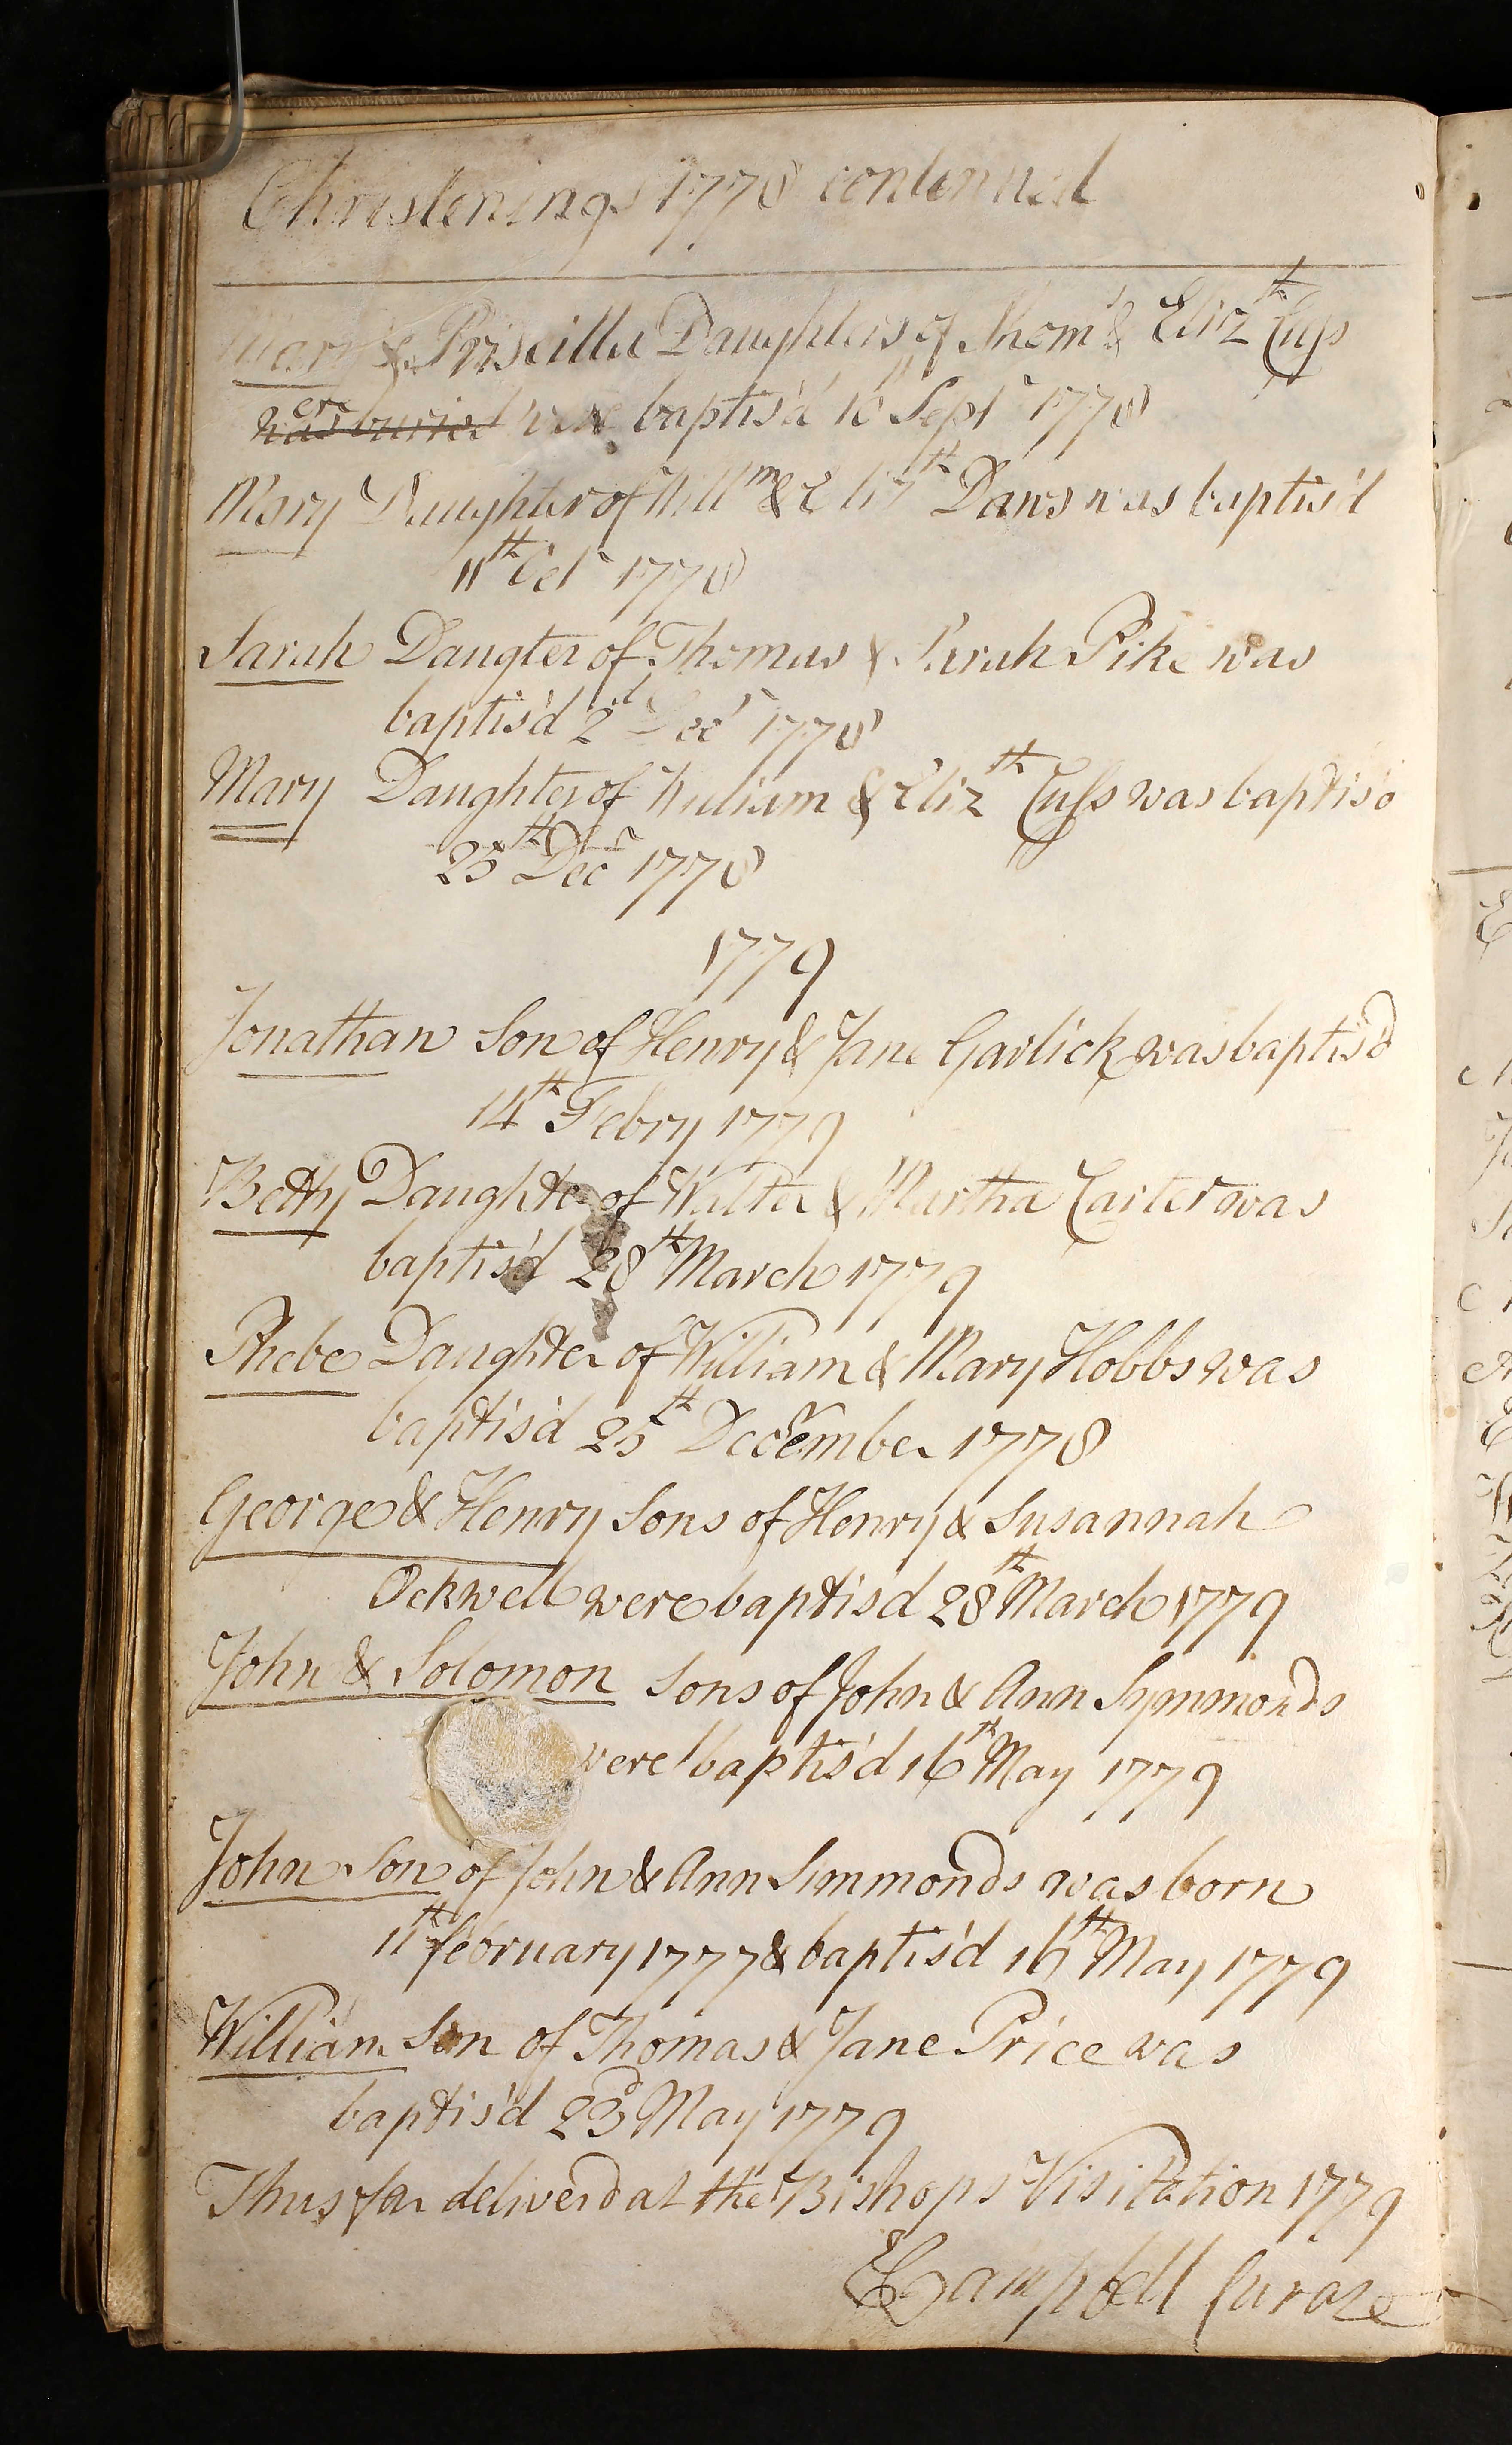 Christenings 1778 contenued
Mary & Priscilla Daughters of Thom^s & Eliz^th Cuss
were baptis'd Sept^r 1778
Mary Daughter of Will^m & Eliz^th Daws was baptis'd
11^th Oct^r 1778
Sarah Daugter of Thomas & Sarah Pike was
baptis'd 2^d Dec^r 1778
Mary Daughter of William & Eliz^th Cuss was baptis'd
25^th Dec^r 1778
1779
Jonathan Son of Henry & Jane Garlick was baptis'd
14^th Febry 1779
Betty Daughter of Walter & Martha Carter was
baptis'd 28^th March 1779
Phebe Daughter of William & Mary Hobbs was
baptis'd 25^th December 1778
George & Henry Sons of Henry & Susannah
Ockwell were baptisd 28^th March 1779
John & Solomon Sons of John & Ann Symmonds
were baptis'd 16^th May 1779
John Son of John & Ann Simmonds was born
11^th february 1777 & baptis'd 16^th May 1779
William Son of Thomas & Jane Price was
baptis'd 23^d May 1779
Thus far deliver'd at the Bishops Visitation 1779
Campbell Curate